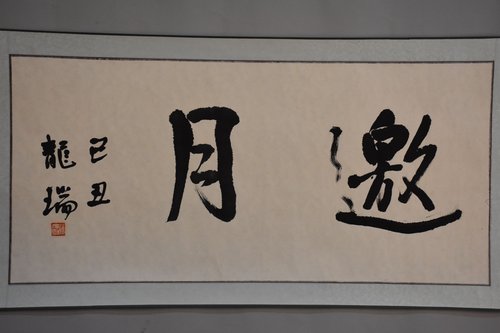 邀月
己丑
龍瑞